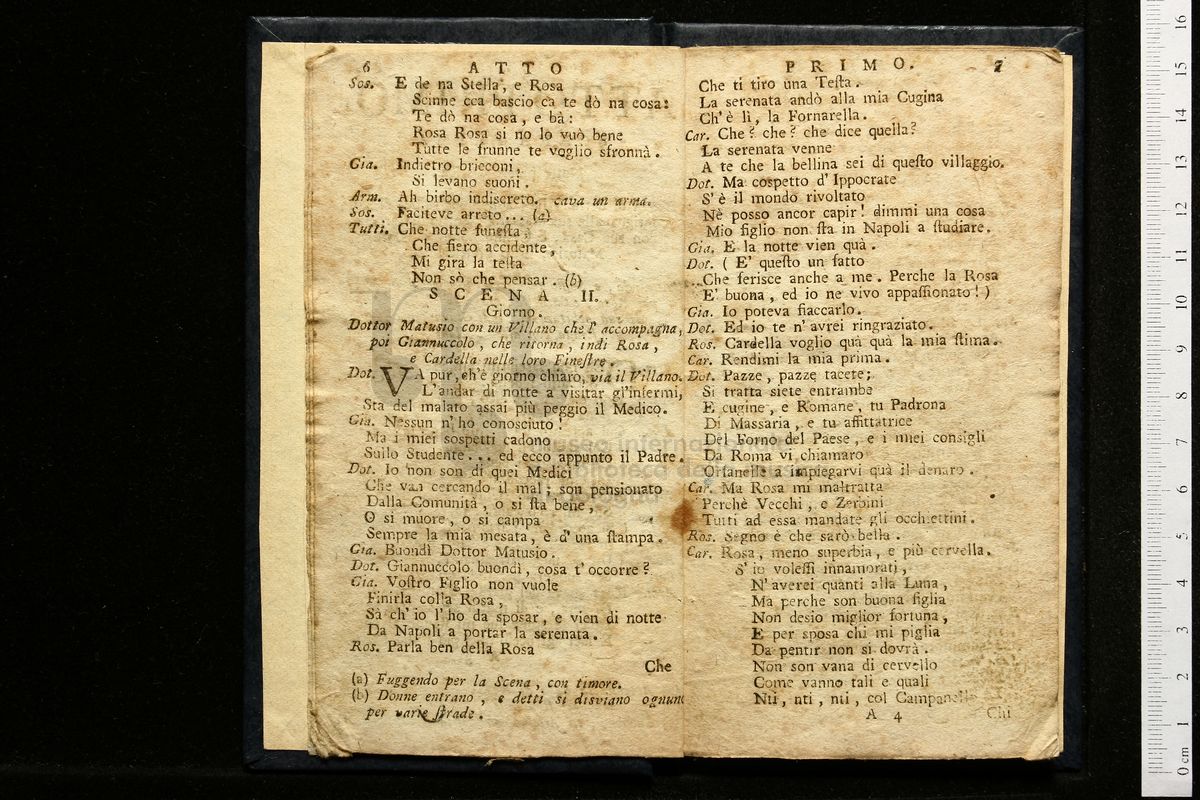 6 ATTO
Sos. E de na Stella, e Rosa
Scinne cca bascio ca te dò na cosa:
Te dò na cosa, e bà:
Rosa Rosa si no lo vuò bene
Tutte le frunne te voglio sfronnà.
Gia. Indietro bricconi,
Si levano suoni.
Arm. Ah birbo indiscreto. cava un arma.
Sos. Faciteve arreto... (a)
Tutti. Che notte funesta,
Che fiero accidente,
Mi gira la testa
Non sò che pensar. (b)
SCENA II.
Giorno.
Dottor Matusio con un Villano che l' accompagna,
poi Giannuccolo, che ritorna, indi Rosa,
e Cardella nelle loro Finestre.
Dot. VA pur, ch'è giorno chiaro, via il Villano.
L'andar di notte a visitar gl'infermi,
Sta del malato assai più peggio il Medico.
Gia. Nessun n' ho conosciuto!
Ma i miei sospetti cadono
Sullo Studente... ed ecco appunto il Padre.
Dot. Io non son di quei Medici
Che van cercando il mal; son pensionato
Dalla Comunità, o si sta bene,
O si muore, o si campa
Sempre la mia mesata, è d' una stampa.
Gia. Buondì Dottor Matusio.
Dot. Giannuccolo buondì, cosa t' occorre?
Gia. Vostro Figlio non vuole
Finirla colla Rosa,
Sà ch' io l' ho da sposar, e vien di notte
Da Napoli a portar la serenata.
Ros. Parla ben della Rosa
Che
(a) Fuggendo per la Scena, con timore.
(b) Donne entrano, e detti si disviano ognuno
per varie strade.
PRIMO. 7
Che ti tiro una Testa.
La serenata andò alla mia Cugina
Ch' è lì, la Fornarella.
Car. Che? che? che dice quella?
La serenata venne
A te che la bellina sei di questo villaggio.
Dot. Ma cospetto d' Ippocrate
S' è il mondo rivoltato
Nè posso ancor capir! dimmi una cosa
Mio figlio non sta in Napoli a studiare.
Gia. E la notte vien quà.
Dot. ( E' questo un fatto
Che ferisce anche a me. Perche la Rosa
E' buona, ed io ne vivo appassionato! )
Gia. Io poteva fiaccarlo.
Dot. Ed io te n' avrei ringraziato.
Ros. Cardella voglio quà quà la mia stima.
Car. Rendimi la mia prima.
Dot. Pazze, pazze tacete;
Si tratta siete entrambe
E cugine, e Romane, tu Padrona
Di Massaria, e tu affittatrice
Del Forno del Paese, e i miei consigli
Da Roma vi chiamaro
Orfanelle a impiegarvi quà il denaro.
Car. Ma Rosa mi maltratta
Perchè Vecchi, e Zerbini
Tutti ad essa mandate gli occhiettini.
Ros. Segno è che sarò bella.
Car. Rosa, meno superbia, e più cervella.
S' io volessi innamorati,
N' averei quanti alla Luna,
Ma perche son buona figlia
Non desio miglior fortuna,
E per sposa chi mi piglia
Da pentir non si dovrà.
Non son vana di cervello
Come vanno tali e quali
Nti, nti, nti, col Campanello
A 4 Chi
0 cm 1 2 3 4 5 6 7 8 9 10 11 12 13 14 15 16